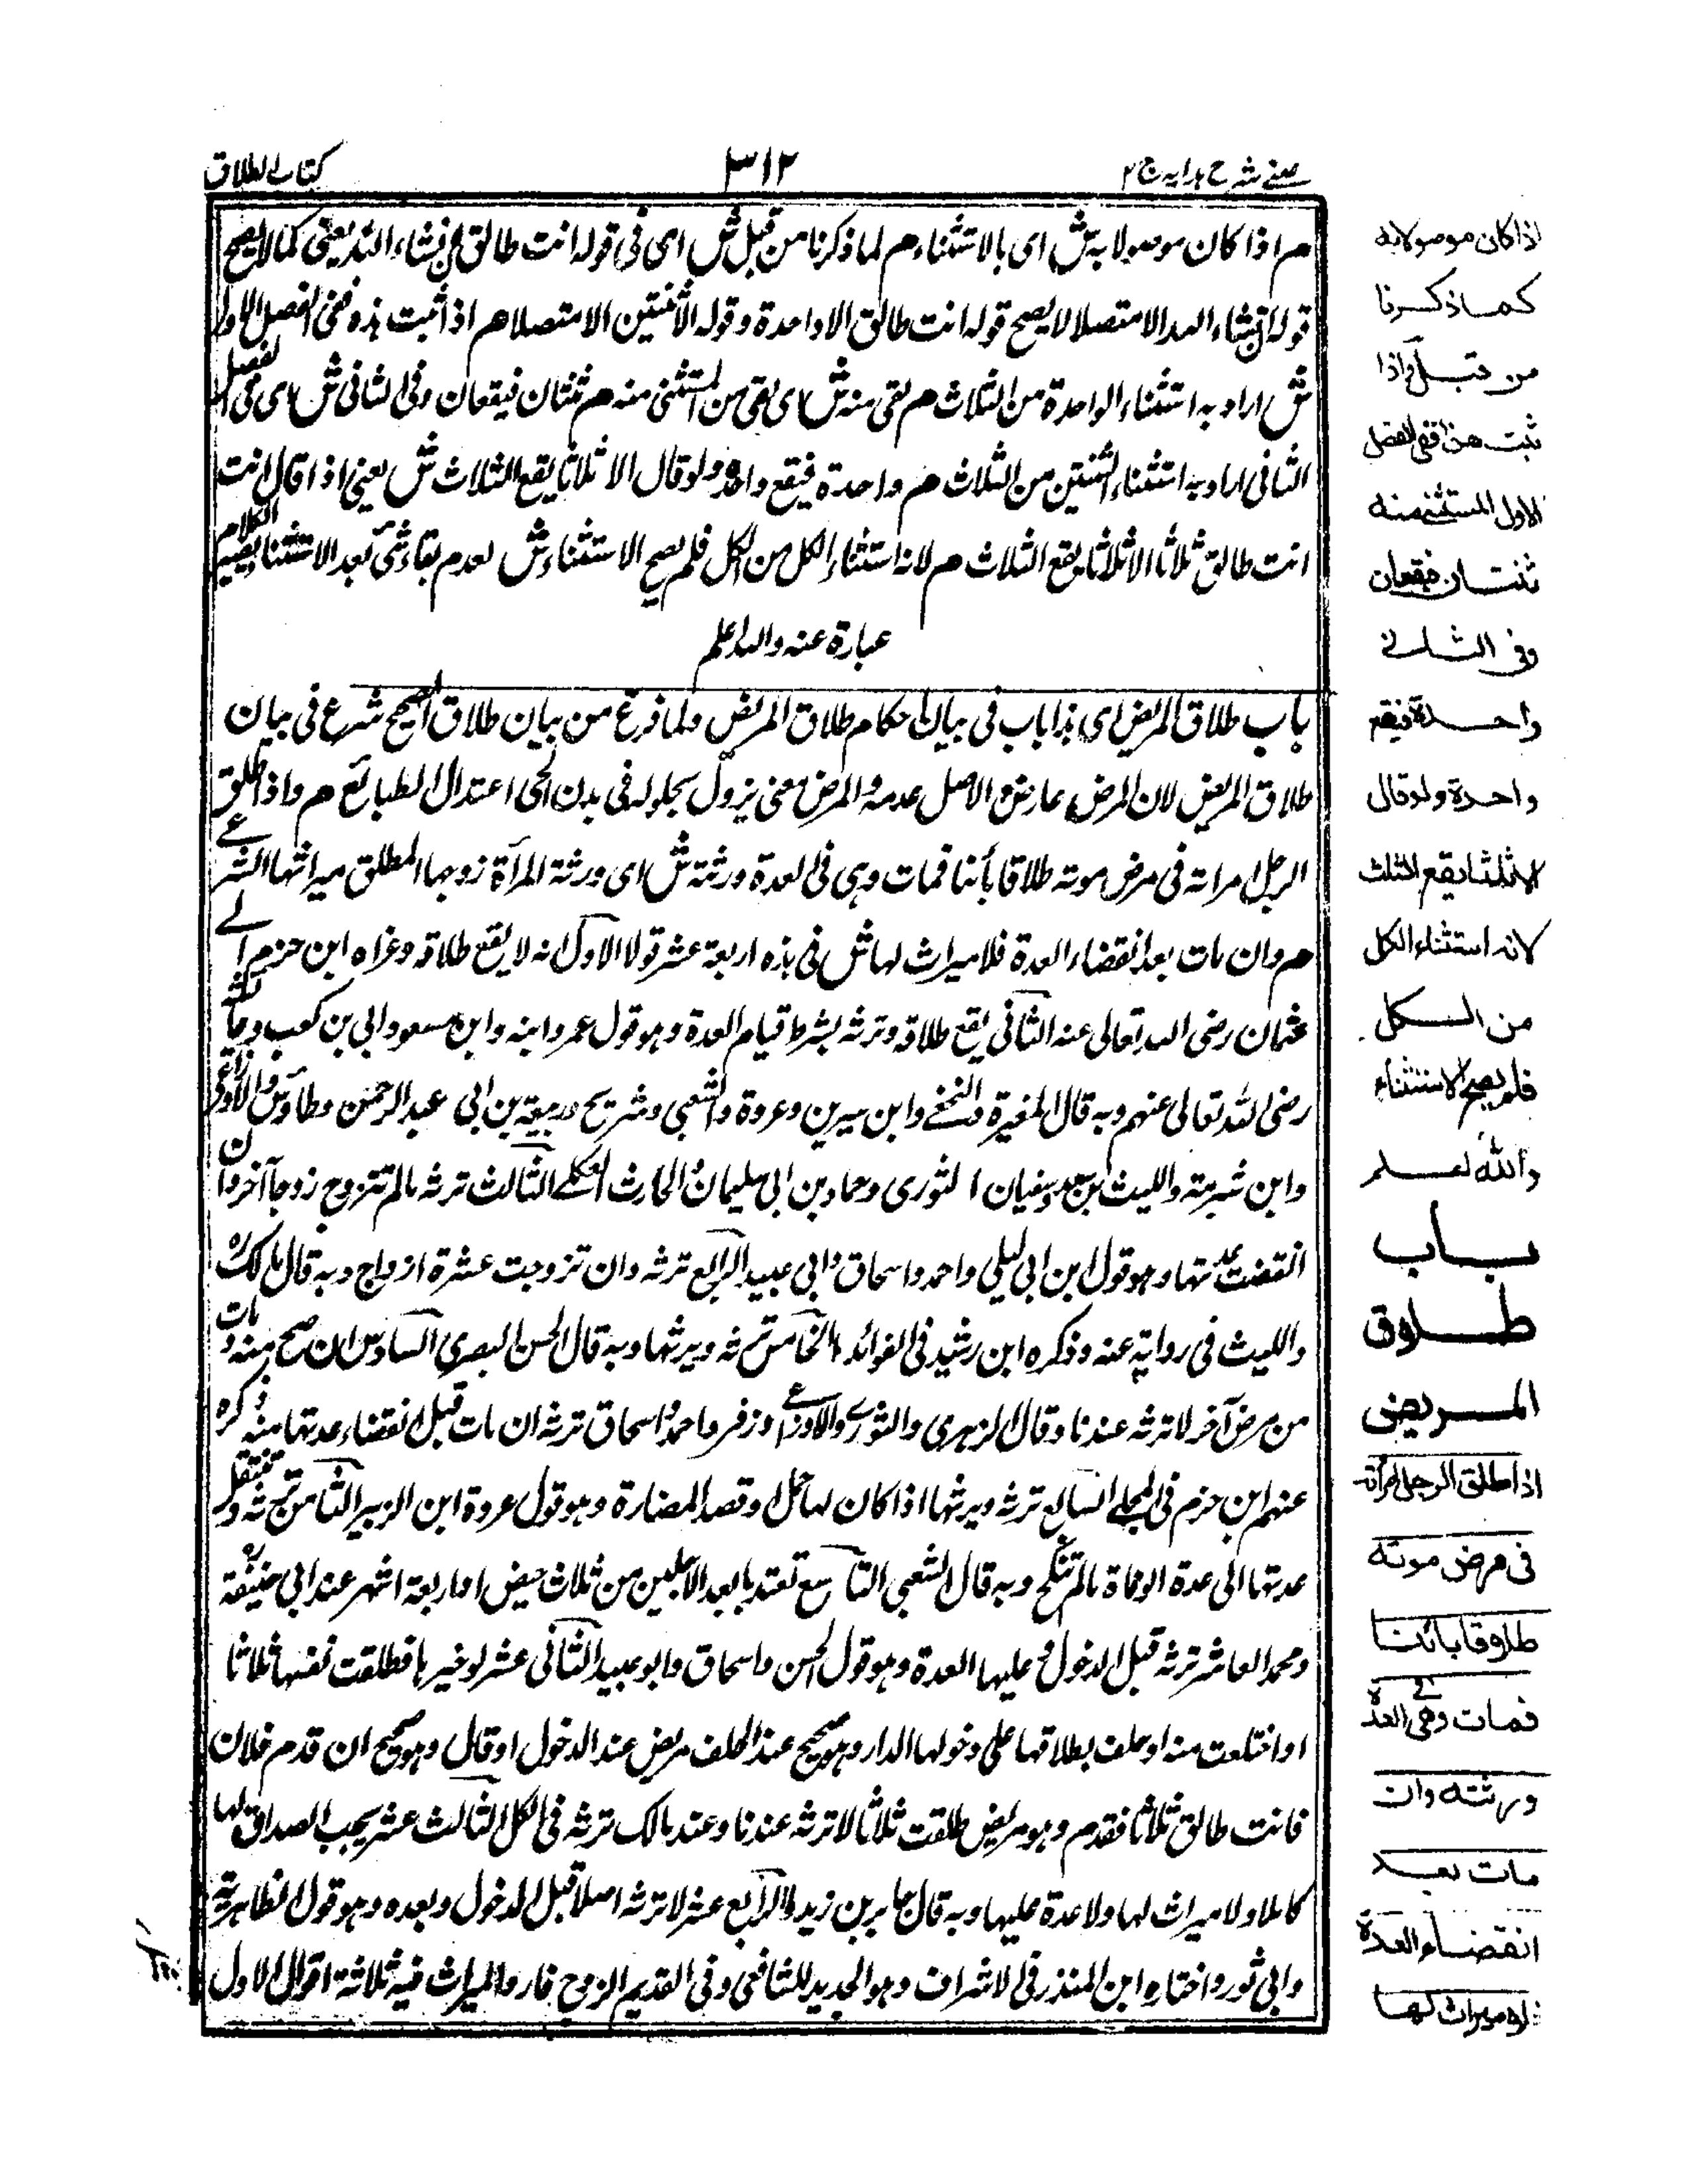 عينى شرح هدايه ج٢
٣١٢
كتاب الطلاق
م اذا كان موصولا به ش اى بالاستثناء م لما ذكرنا من قبل ش اى فى قوله انت طالق ان شاء الله يعنى كما لا يصح
قوله ان شاء الله الا متصلا لا يصح قوله انت طالق الا واحدة وقوله الا ثنتين الا متصلا م اذا ثبت هذه ففى الفصل الاول
ش اراد به استثناء الواحدة من الثلاث م بقى منه ش اى بقى من المستثنى منه م ثنتان فيقعان وفى الثانى ش اى فى الفصل
الثانى اراد به استثناء الثنتين من الثلاث م واحدة فيقع واحدة ولو قال الا ثلاثا يقع الثلاث ش يعنى اذا قال انت
انت طالق ثلاثا الا ثلاثا يقع الثلاث م لانه استثناء الكل من الكل فلم يصح الاستثناء ش لعدم بقاء شئ بعد الاستثناء ليصير الكلام
عبارة عنه والله اعلم
باب طلاق المريض اى هذا باب فى بيان احكام طلاق المريض ولما فرغ من بيان طلاق الصحيح شرع فى بيان
طلاق المريض لان المرض عارض والاصل عدمه والمرض معنى يزول بحلوله فى بدن الحى اعتدال الطبائع م واذا طلق
الرجل امراته فى مرض موته طلاقا بائنا فمات وهى فى العدة ورثته ش اى ورثة المرأة زوجها المطلق ميراثها الشرعى
م وان مات بعد انقضاء العدة فلا ميراث لها ش فى هذه اربعة عشر قولا الاول انه لا يقع طلاقه وعزاه ابن حزم الى
عثمان رضى الله تعالى عنه الثانى يقع طلاقه وترثه بشرط قيام العدة وهو قول عمر وابنه وابن مسعود وابى بن كعب وعائشة
رضى الله تعالى عنهم وبه قال المغيرة والنخعى وابن سيرين وعروة والشعبى وشريح وربيعة بن ابى عبد الرحمن وطاوس والاوزاعى
وابن شبرمة والليث بن سعد وسفيان الثورى وحماد بن ابى سليمان والحارث العكلى الثالث ترثه مالم تتزوج زوجا آخر وان
انقضت عدتها وهو قول ابن ابى ليلى واحمد واسحاق وابى عبيد الرابع ترثه وان تزوجت عشرة ازواج وبه قال مالك ره
والليث فى رواية عنه وذكره ابن رشيد فى الفوائد الخامس ترثه ويرثها وبه قال الحسن البصرى السادس ان صح منه ومات
من مرض آخر لا ترثه عندنا وقال الزهرى والثورى والاوزاعى وزفر واحمد واسحاق ترثه ان مات قبل انقضاء عدتها منه ذكره
عنهم ابن حزم فى المحلى السابع ترثه ويرثها اذا كان لها حمل او قصد المضارة وهو قول عروة ابن الزبير الثامن ترثه وتنتقل
عدتها الى عدة الوفاة مالم تنكح وبه قال الشعبى التاسع تعتد بابعد الاجلين من ثلاث حيض او اربعة اشهر عند ابى حنيفة ره
ومحمد العاشر ترثه قبل الدخول وعليها العدة وهو قول الحسن واسحاق وابو عبيد الثانى عشر لو خيرها فطلقت نفسها ثلاثا
او اختلعت منه او حلف بطلاقها على دخولها الدار وهو صحيح عند الحلف مريض عند الدخول او قال وهو صحيح ان قدم فلان
فانت طالق ثلاثا فقدم وهو مريض طلقت ثلاثا لا ترثه عندنا وعند مالك ترثه فى الكل الثالث عشر يجب الصداق لها
كاملا ولا ميراث لها ولا عدة عليها وبه قال جابر بن زيد والرابع عشر لا ترثه اصلا قبل الدخول وبعده وهو قول الظاهرية
وابى ثور واختاره ابن المنذر فى الاشراف وهو الجديد للشافعى وفى القديم الزوج فار والميراث فيه ثلاثة اقوال الاول
اذا كان موصولا به
كما ذكرنا
من قبل واذا
ثبت هذا ففى الفصل
الاول المستثنى منه
ثنتان فيقعان
وفى الثانى
واحدة فيقع
واحدة ولو قال
الا ثلثا يقع الثلث
لانه استثناء الكل
من الكل
فلم يصح الاستثناء
والله اعلم
باب
طلاق
المريض
اذا طلق الرجل امرأته
فى مرض موته
طلاقا بائنا
فمات وهى فى العدة
ورثته وان
مات بعد
انقضاء العدة
فلا ميراث لها